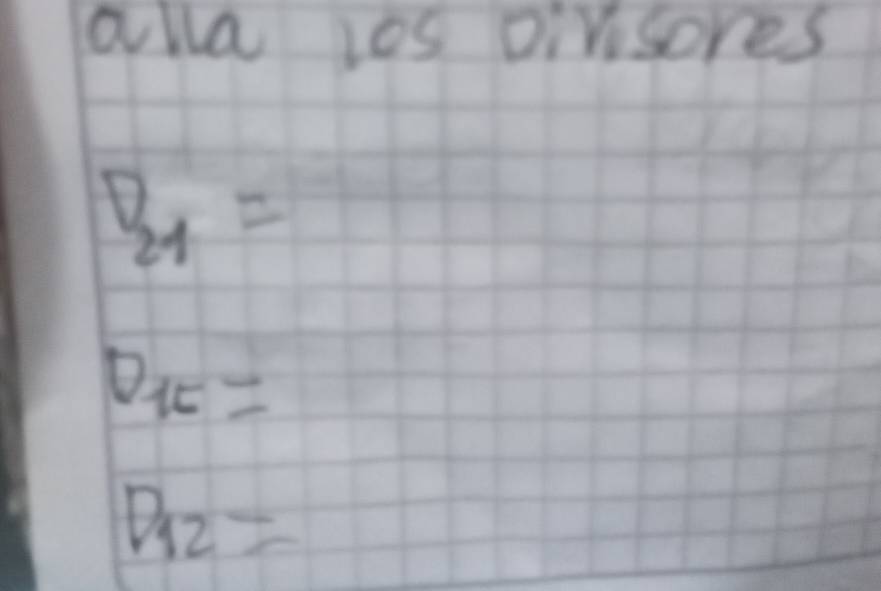 alla los Divisores
D21 =
D15 =
D12 =